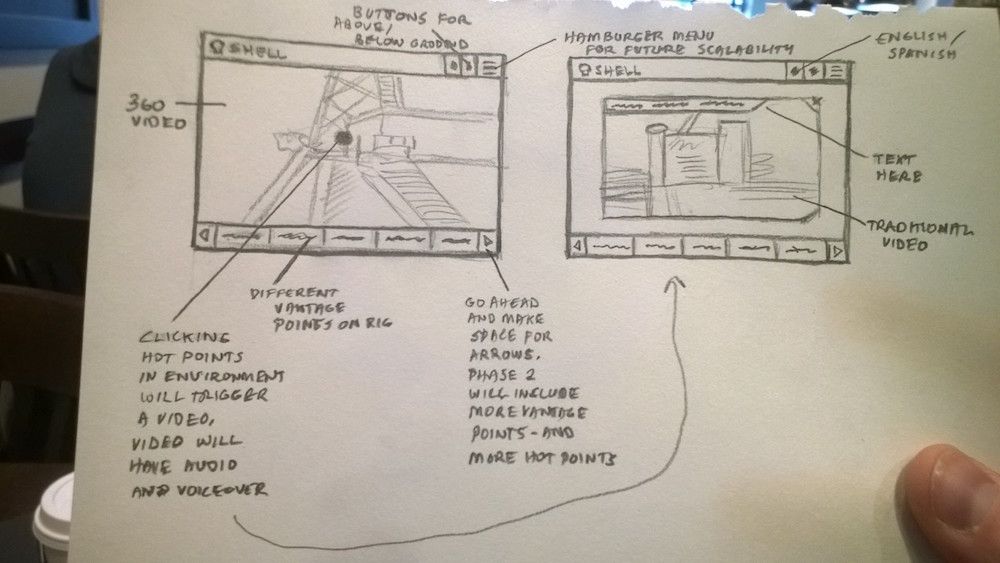 BUTTONS FOR
ABOVE/
BELOW GROUND
HAMBURGER MENU
FOR FUTURE SCALABILITY
ENGLISH/
SPANISH
SHELL
SHELL
360
VIDEO
TEXT
HERE
TRADITIONAL
VIDEO
DIFFERENT
VANTAGE
POINTS ON RIG
CLICKING
HOT POINTS
IN ENVIRONMENT
WILL TRIGGER
A VIDEO,
VIDEO WILL
HAVE AUDIO
AND VOICEOVER
GO AHEAD
AND MAKE
SPACE FOR
ARROWS.
PHASE 2
WILL INCLUDE
MORE VANTAGE
POINTS-AND
MORE HOT POINTS